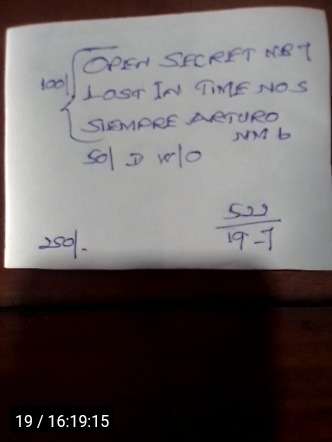 OPEN SECRET NB 7
100/ LOST IN TIME NO 5
SIEMPRE ARTURO
NM 6
50/ D W/O
522
250/. 19-7
19 / 16:19:15